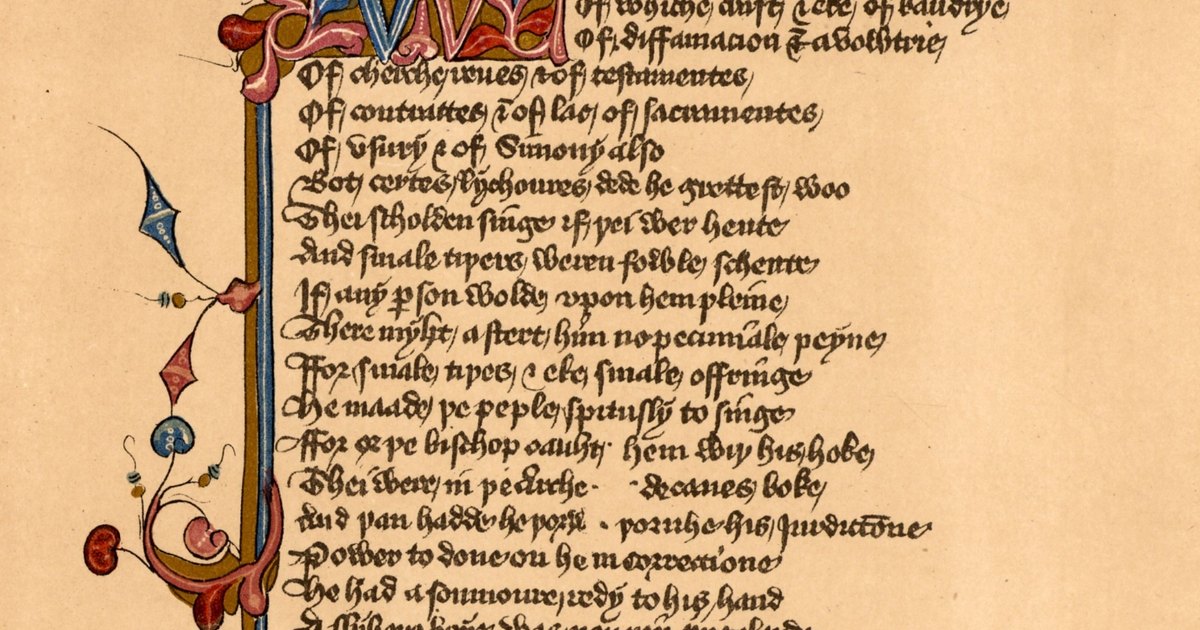 Of wicche craft, & eke, of baudrye
Of, diffamacion & avowhtrie,
Of cherche, reues & of testamentes,
Of contractes, & of lac, of sacramentes,
Of, vsury & of, Simony also
Bot, certes, lychoures, dede he grettest, woo
Thei scholden singe if, þei wer hente
And smale tiþers, weren fowle, schente
If, any ꝑson wolde, vpon hem pleine,
There myht, a stert, him no pecuniale peyne,
Ffor, smale, tiþes, & eke, smale, offringe
He maade, þe peple, spitusly to singe
Ffor or þe bischop cauht, hem wiþ his hoke,
Thei were, in þe decanes, boke,
And þan hadde, he þoruhe his, Jurdictōne
Power to done on hem correctione
He had a somnoure, redy to his hand